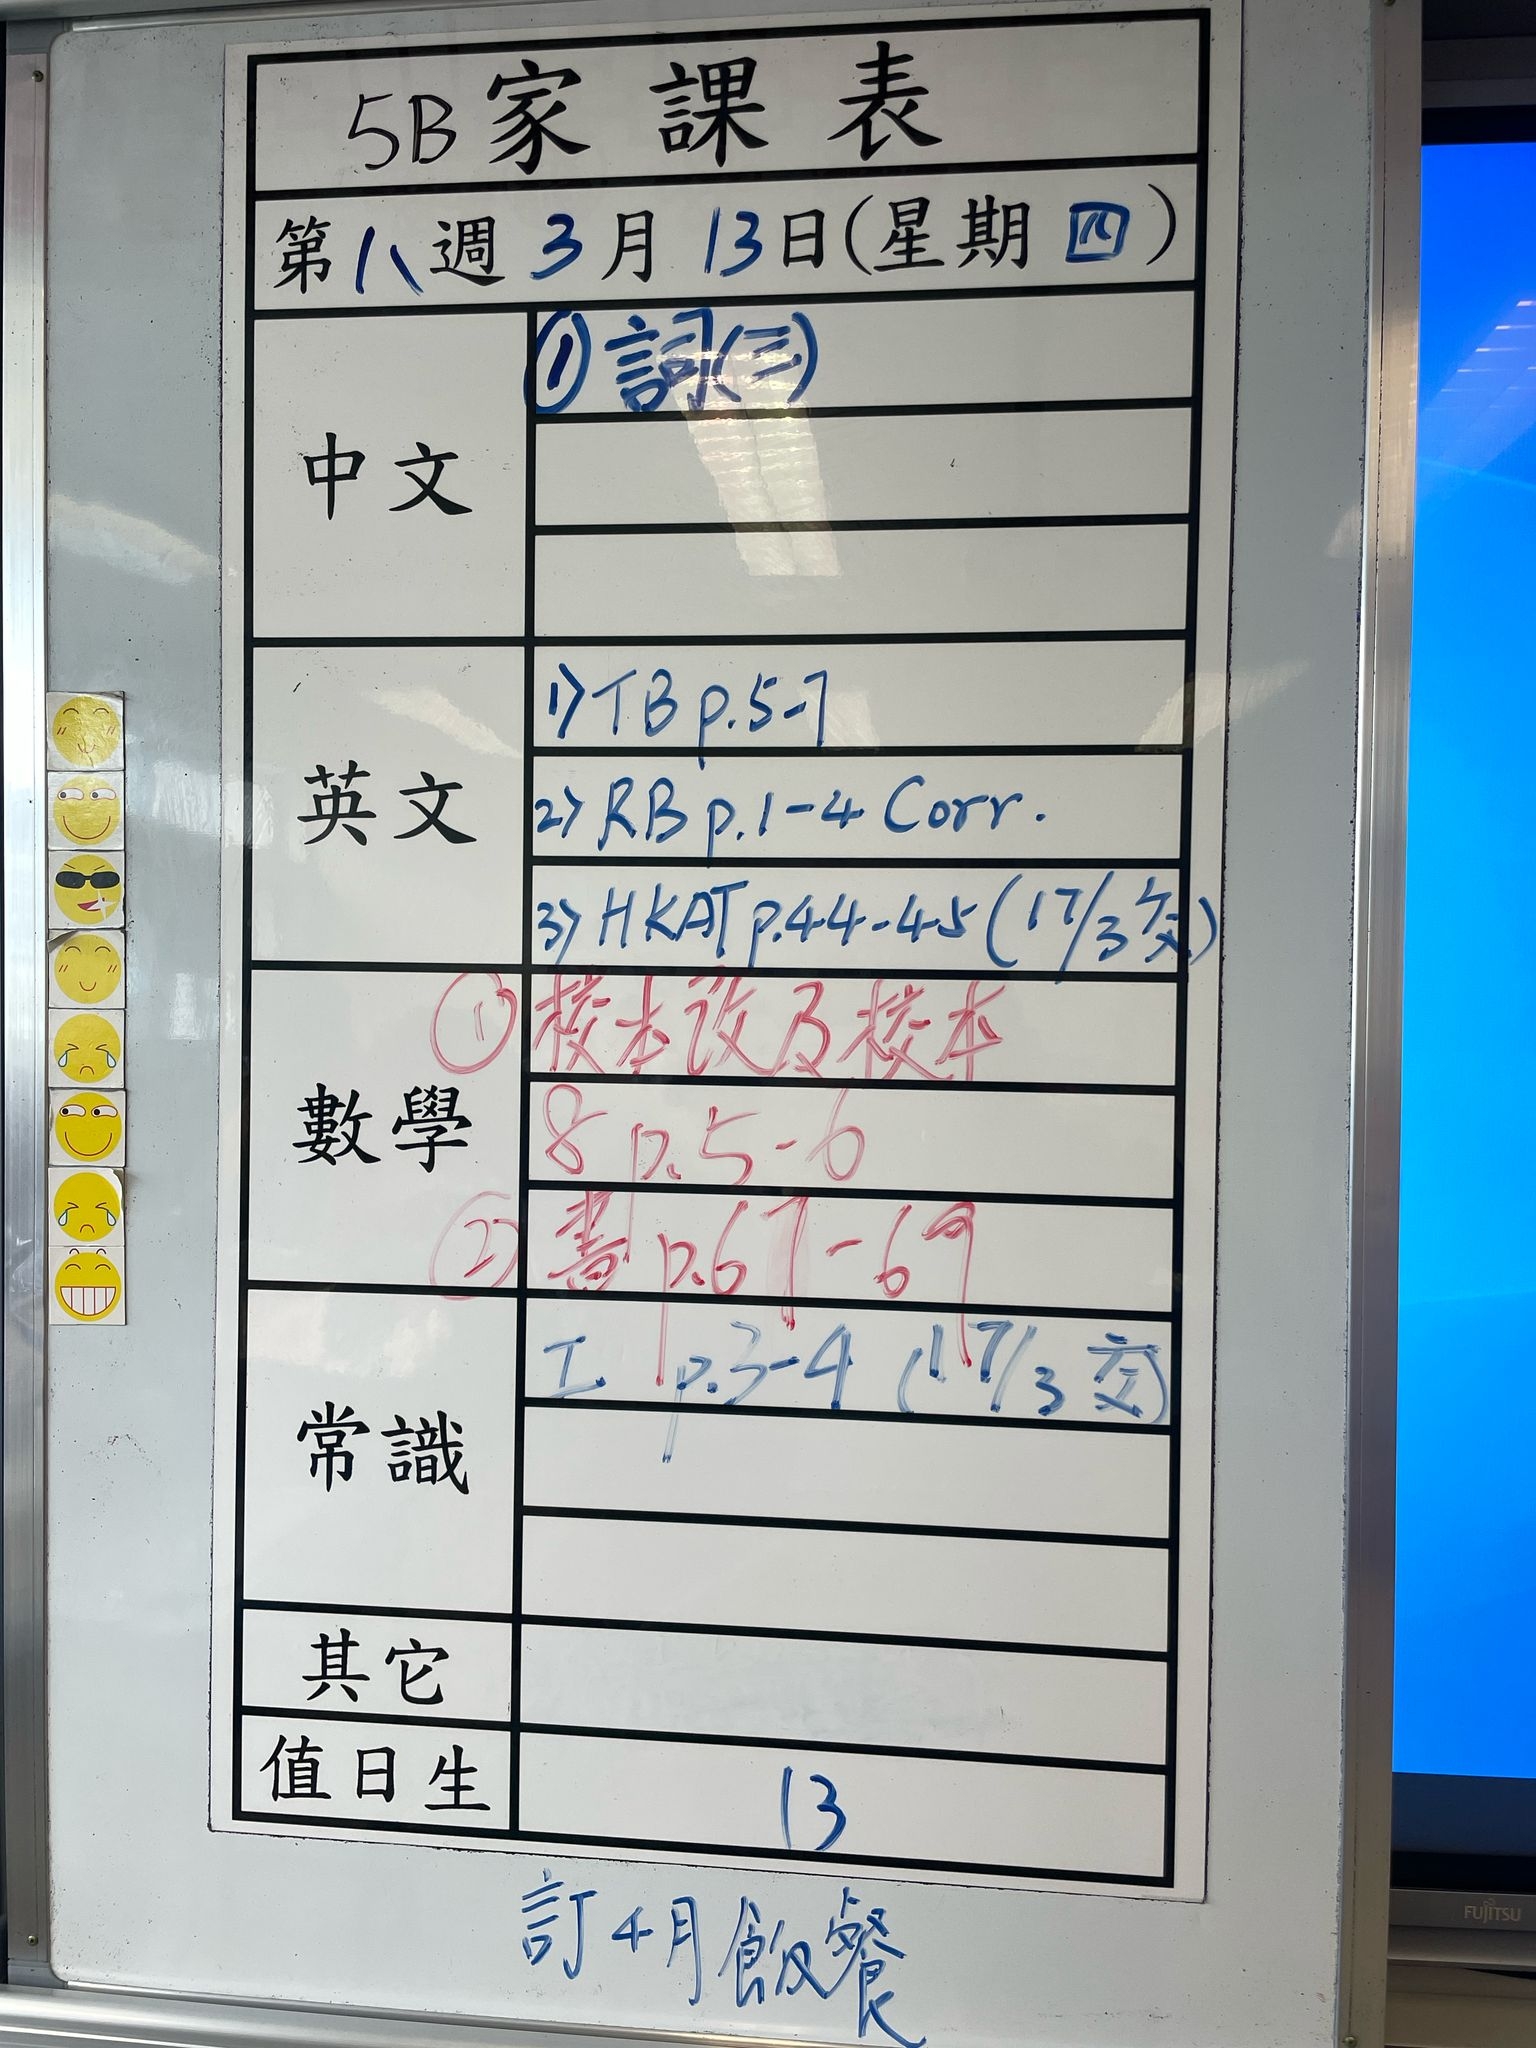 5B家課表
第八週3月13日(星期四)
中文
① 詞(三)
英文
1) TB p.5-7
2) RB p.1-4 Corr.
3) HKAT p.44-45 (17/3交)
數學
① 校本改及校本
8 p.5-6
② 書p.67-69
常識
工 p.3-4 (17/3交)
其它
值日生
13
訂4月飯餐
FUJITSU